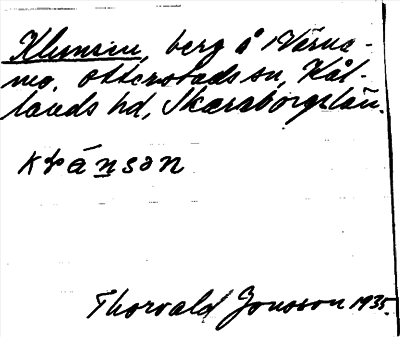 Klunsen, berg å Värna-
mo, Otterstads sn, Kål-
lands hd, Skaraborgs län.
Thorvald Jonsson 1935.